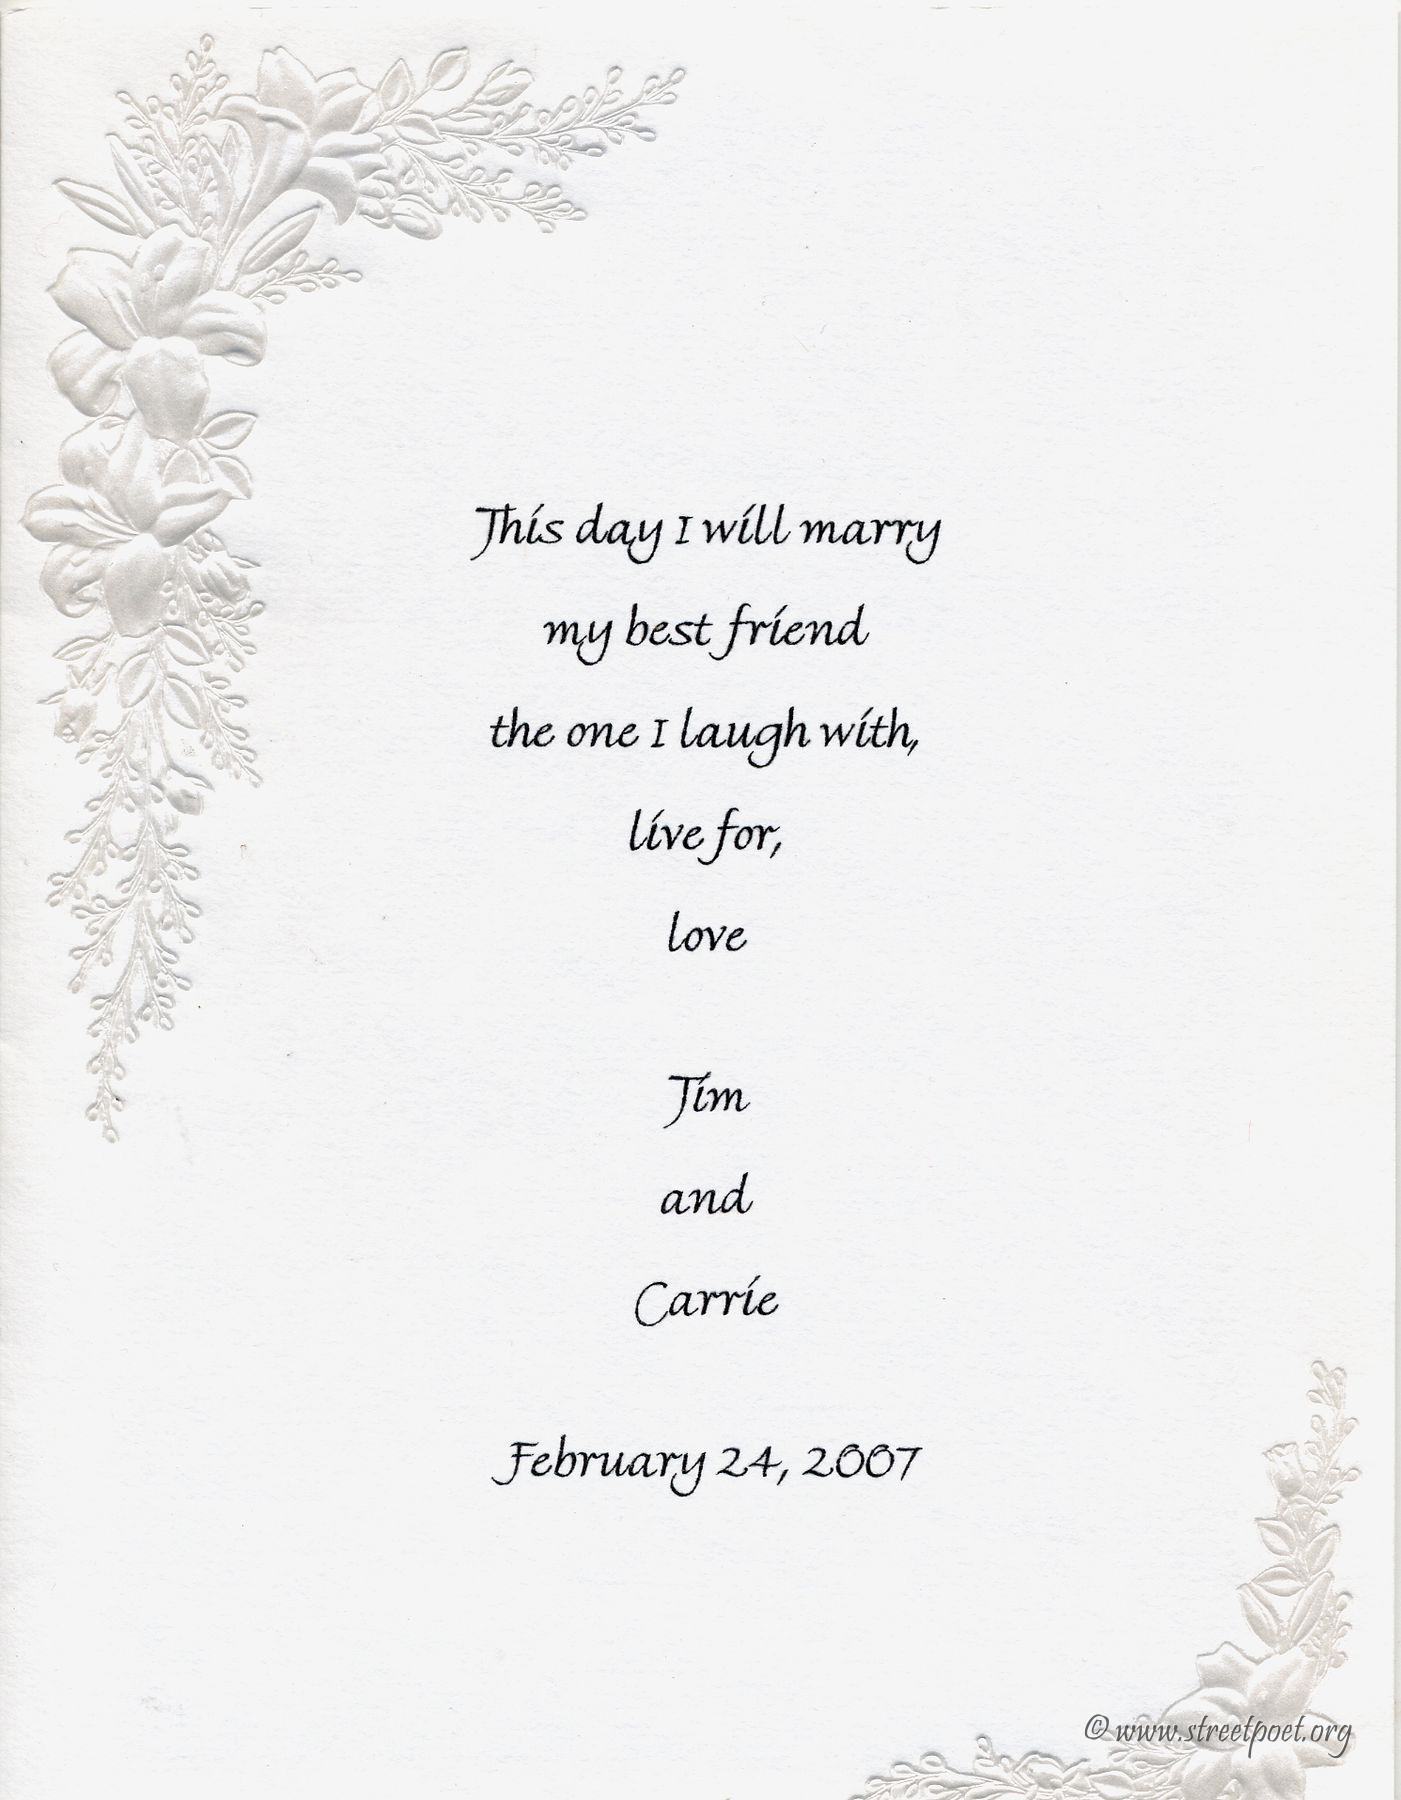 This day I will marry
my best friend
the one I laugh with,
live for,
love
Tim
and
Carrie
February 24, 2007
© www.streetpoet.org